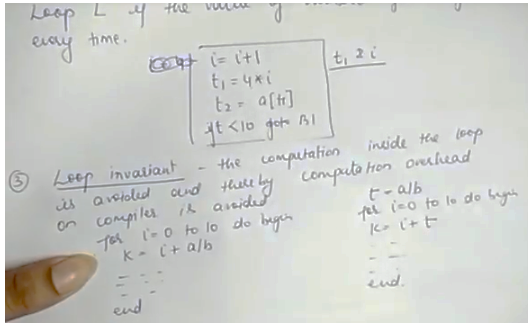 Loop L if the value of
every time.
i = i+1
t1 = 4*i
t2 = a[t1]
if t < 10 goto B1
t1 & i
③ Loop invariant - the computation inside the loop
is avoided and thereby computation overhead
on compiler is avoided
for i=0 to 10 do begin
K = i + a/b
end
t = a/b
for i=0 to 10 do begin
K = i + t
end.